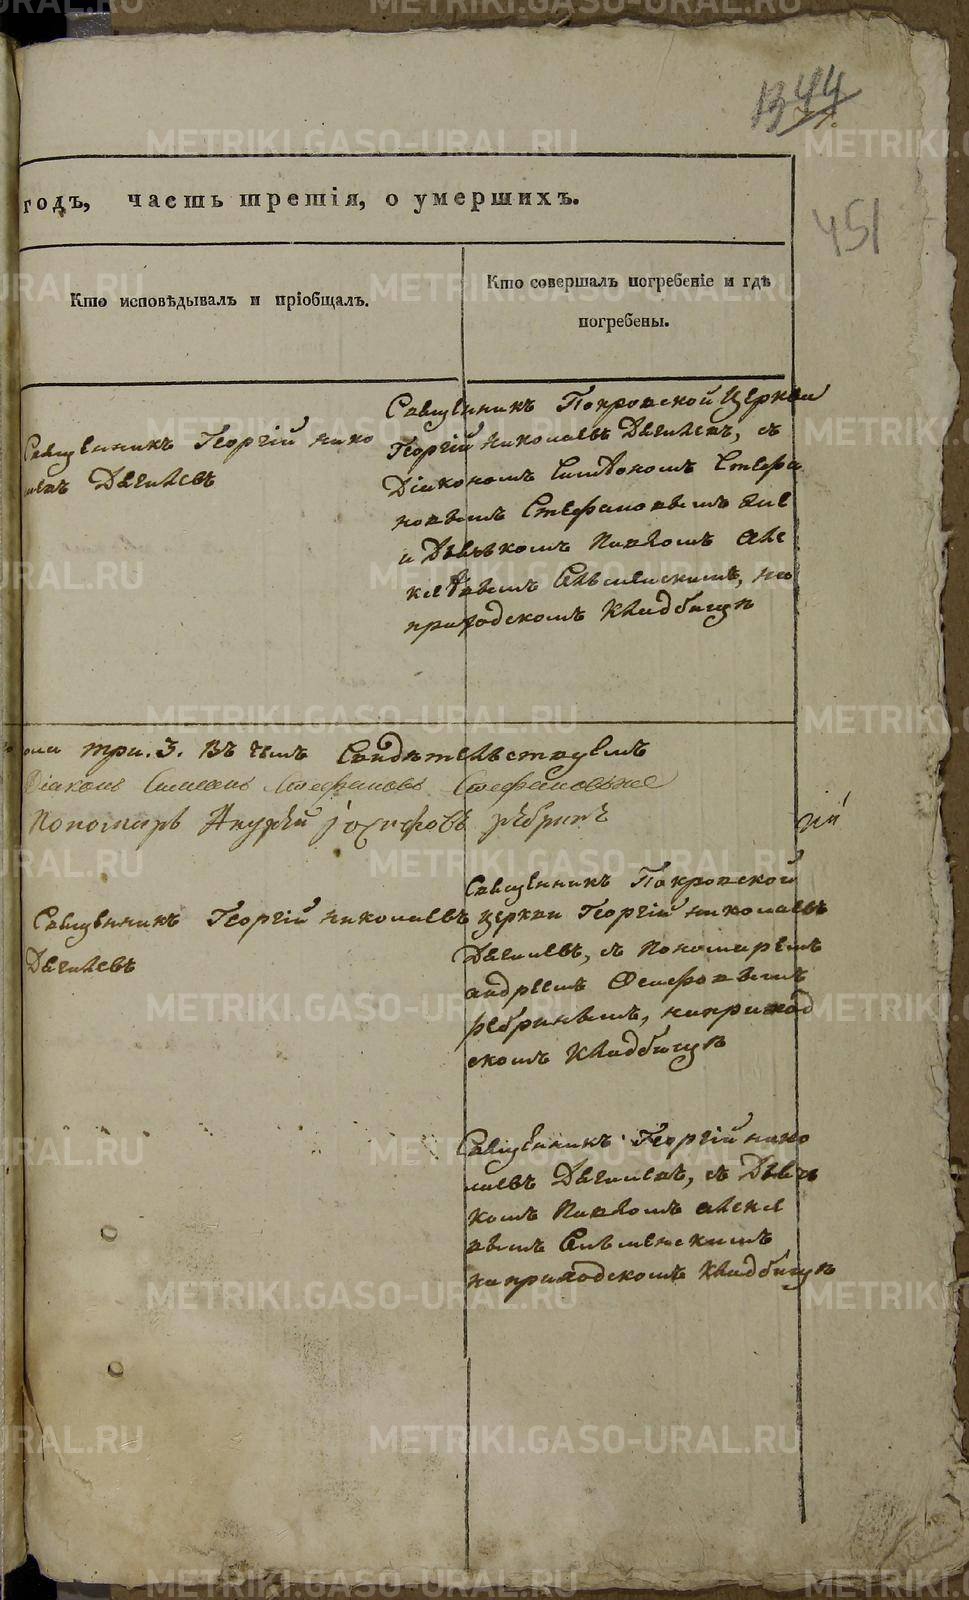 1344
451
годъ, часть третія, о умершихъ.
Кто исповѣдывалъ и пріобщалъ.
Кто совершалъ погребеніе и гдѣ
погребены.
Священникъ Георгій Нико
лаевъ Дягилевъ
Священникъ Покровской Церкви
Георгій Николаевъ Дягилевъ, съ
Діакономъ Симеономъ Стефа
новымъ Стефановымъ
и Дьячкомъ Павломъ Але
на
приходскомъ Кладбищѣ
три. 3. Въ чемъ Свидѣтельствуемъ
Діаконъ Симеонъ Стефановъ
Пономарь Андрей Іосифовъ
Священникъ Георгій Николаевъ
Дягилевъ
Священникъ Покровской
церкви Георгій Николаевъ
Дягилевъ, съ Пономаремъ
Андреемъ Осиповымъ
наприход
скомъ Кладбищѣ
Священникъ Георгій Нико
лаевъ Дягилевъ, съ Дьяч
комъ Павломъ Алексе
вымъ
наприходскомъ Кладбищѣ
METRIKI.GASO-URAL.RU